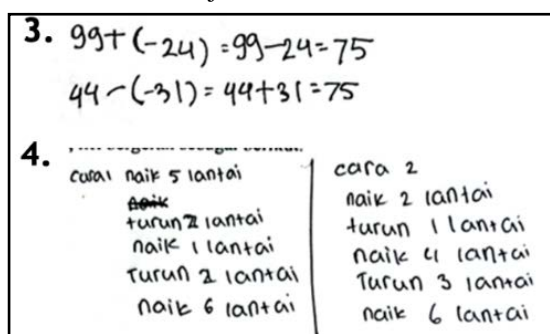 3. 99+(-24) = 99-24=75
44-(-31) = 44+31=75
4.
cara1 naik 5 lantai
turun 2 lantai
naik 1 lantai
Turun 2 lantai
naik 6 lantai
cara 2
naik 2 lantai
turun 1 lantai
naik 4 lantai
Turun 3 lantai
naik 6 lantai